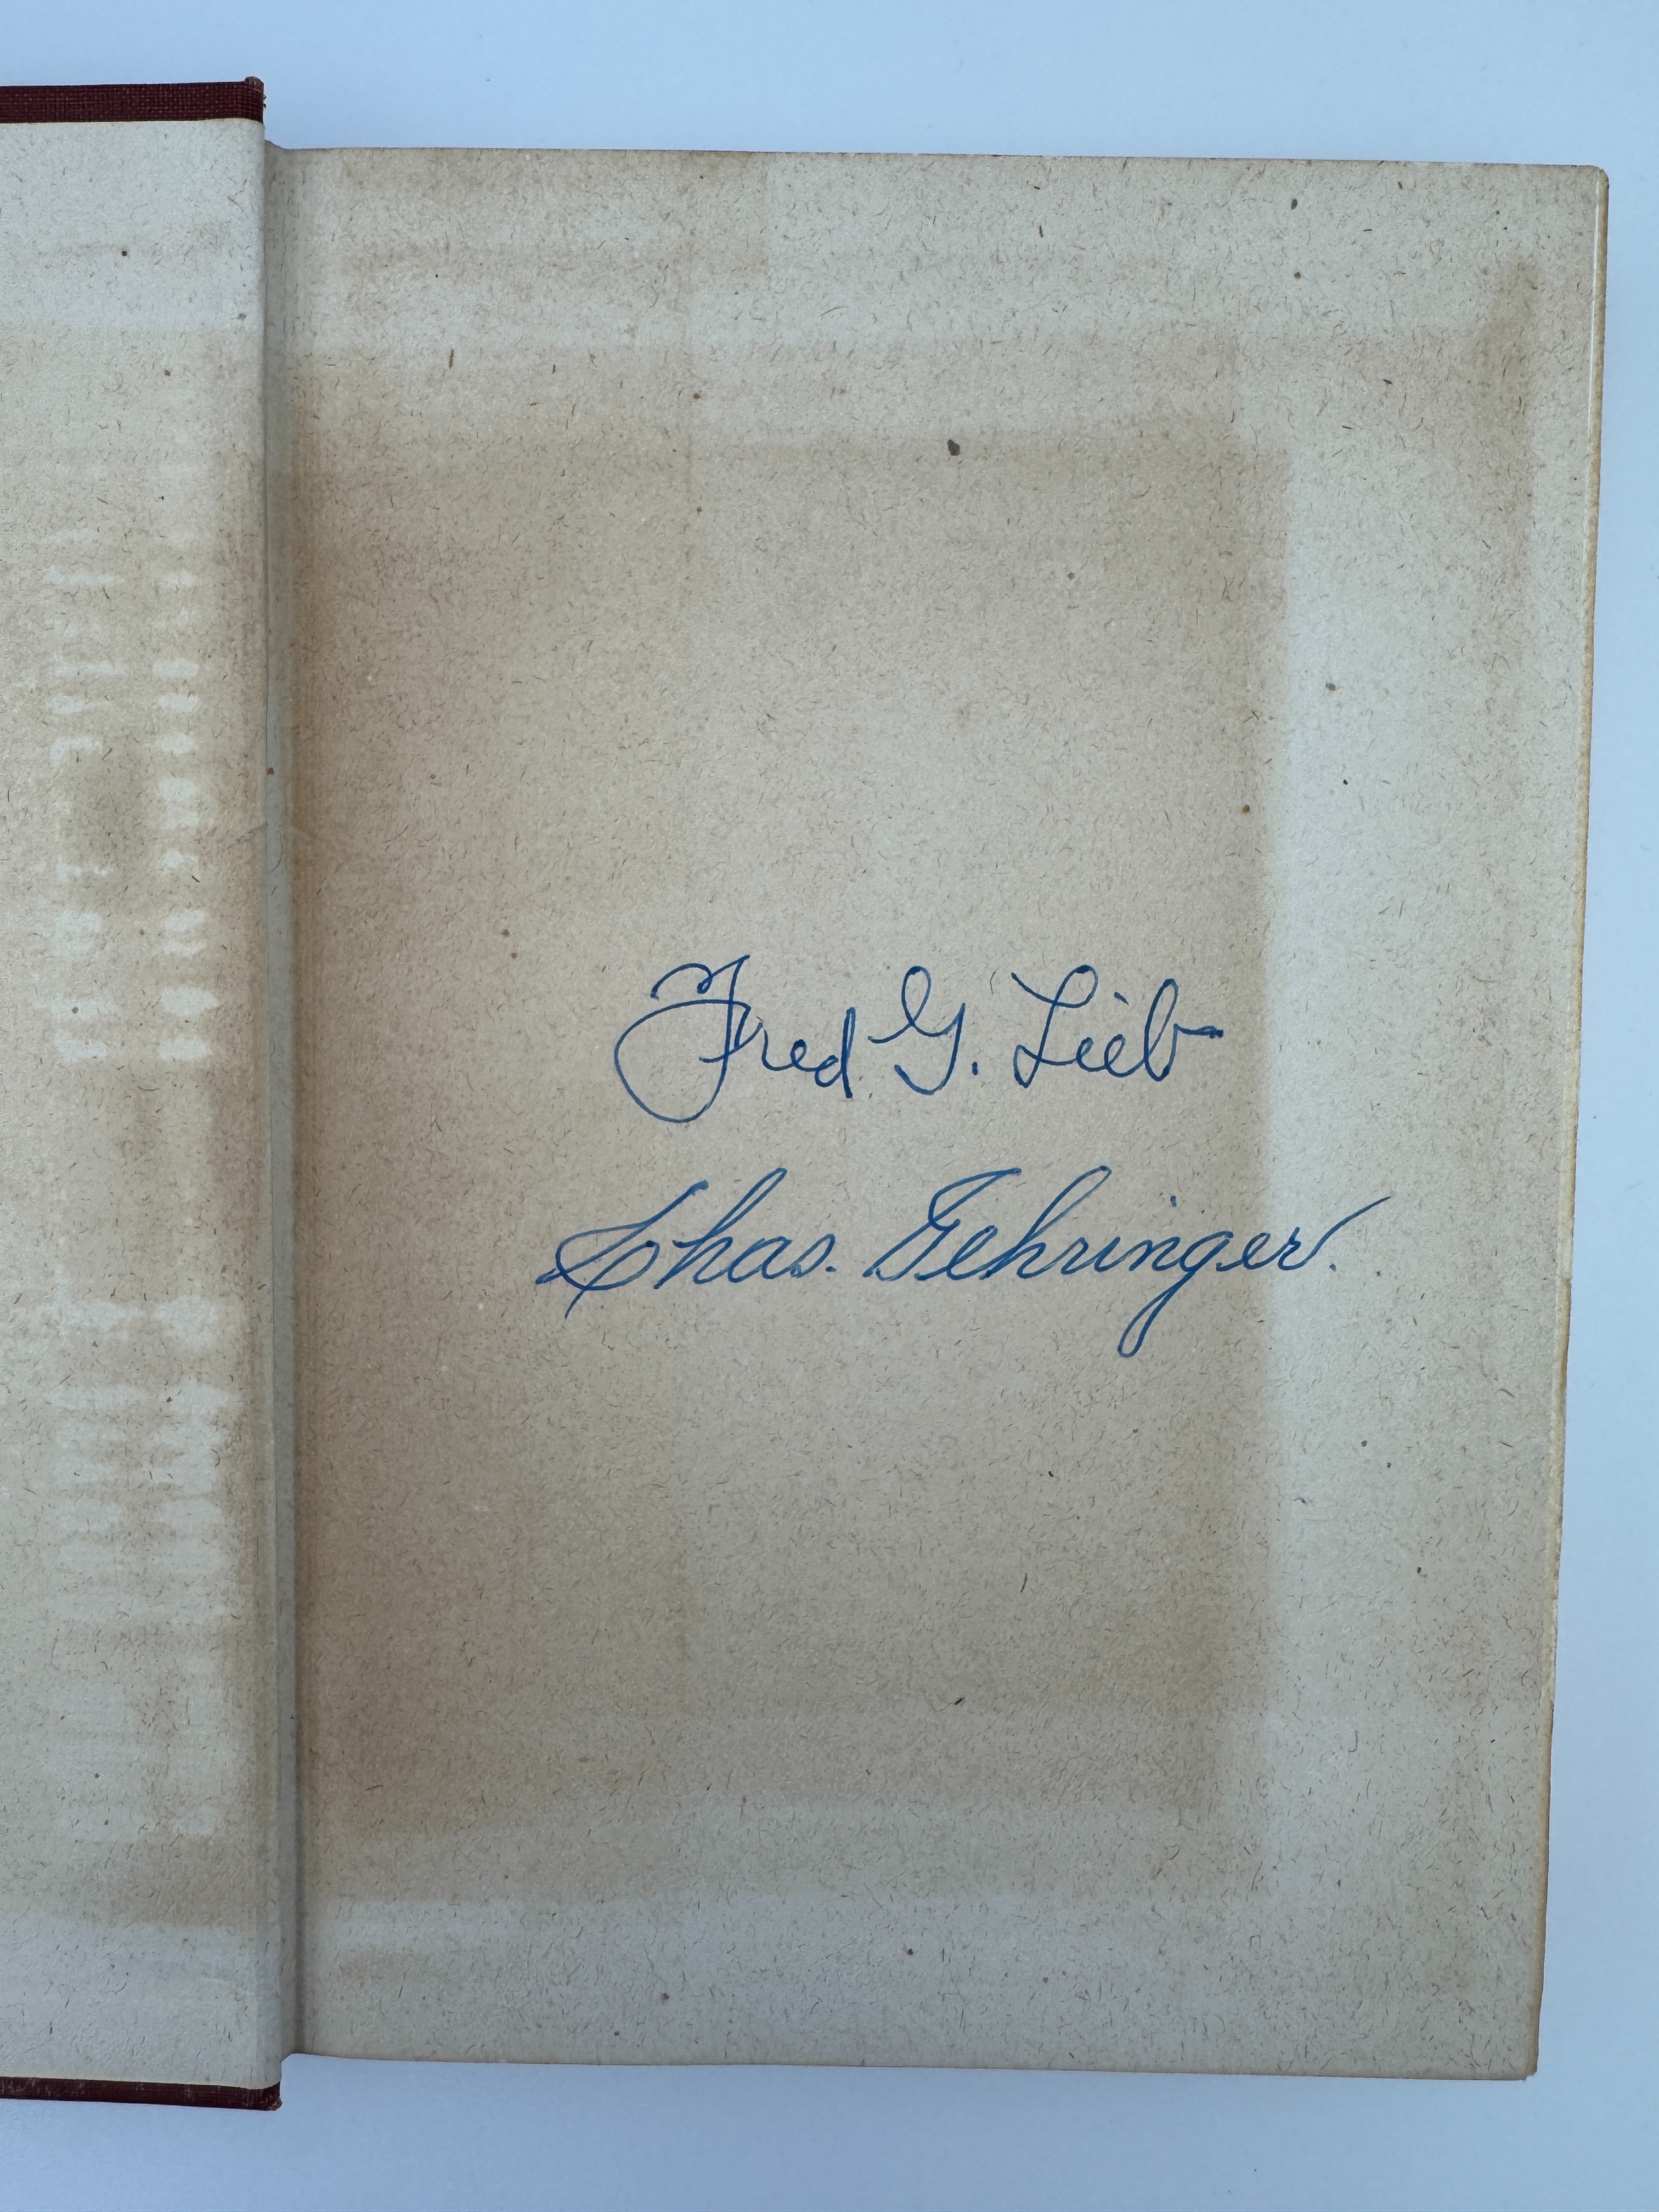 Fred G. Lieb
Chas. Gehringer.